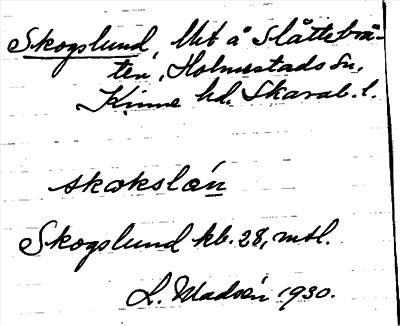 Skogslund, Ut å Slåttebrå-
ten, Holmestads sn,
Kinne hd. Skarab. l.
skɷkslɷ́n
Skogslund kb. 28, mtl.
L. Madsén 1930.